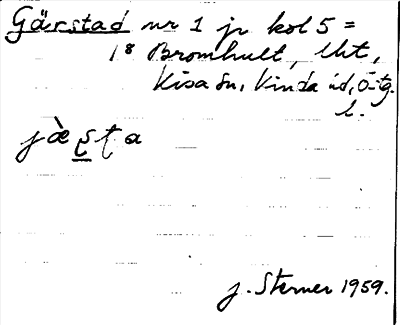 Gärstad nr 1 jr kol 5 =
1⁸ Bromhult, lht,
Kisa sn, Kinda hd, Ö-tg.
l.
J. Sterner 1959.